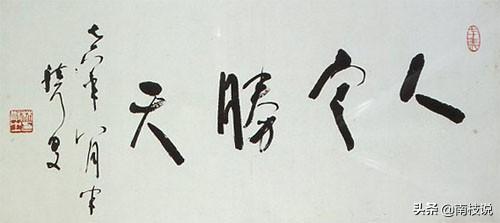 人定勝天
七六年八月
头条 @南枝说